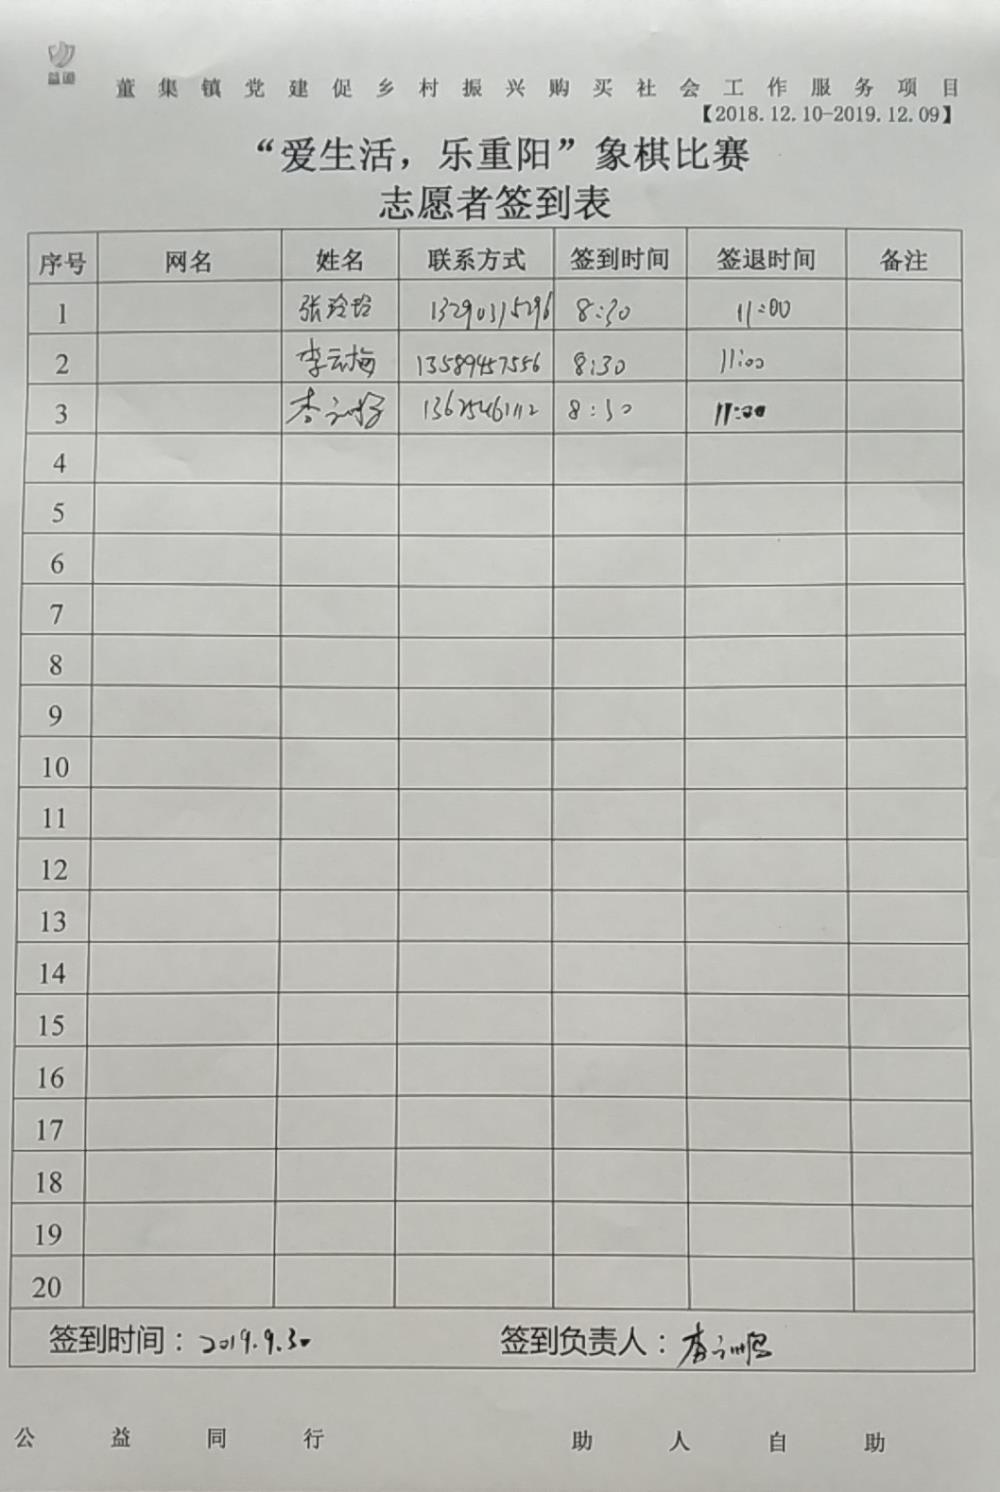 益道
董集镇党建促乡村振兴购买社会工作服务项目
【2018.12.10-2019.12.09】
“爱生活，乐重阳”象棋比赛
志愿者签到表
序号 网名 姓名 联系方式 签到时间 签退时间 备注
1 张玲玲 13290315296 8:30 11:00
2 李云梅 13589457556 8:30 11:00
3 李 13625461112 8:30 11:00
4
5
6
7
8
9
10
11
12
13
14
15
16
17
18
19
20
签到时间：2019.9.30 签到负责人：李
公益同行 助人自助